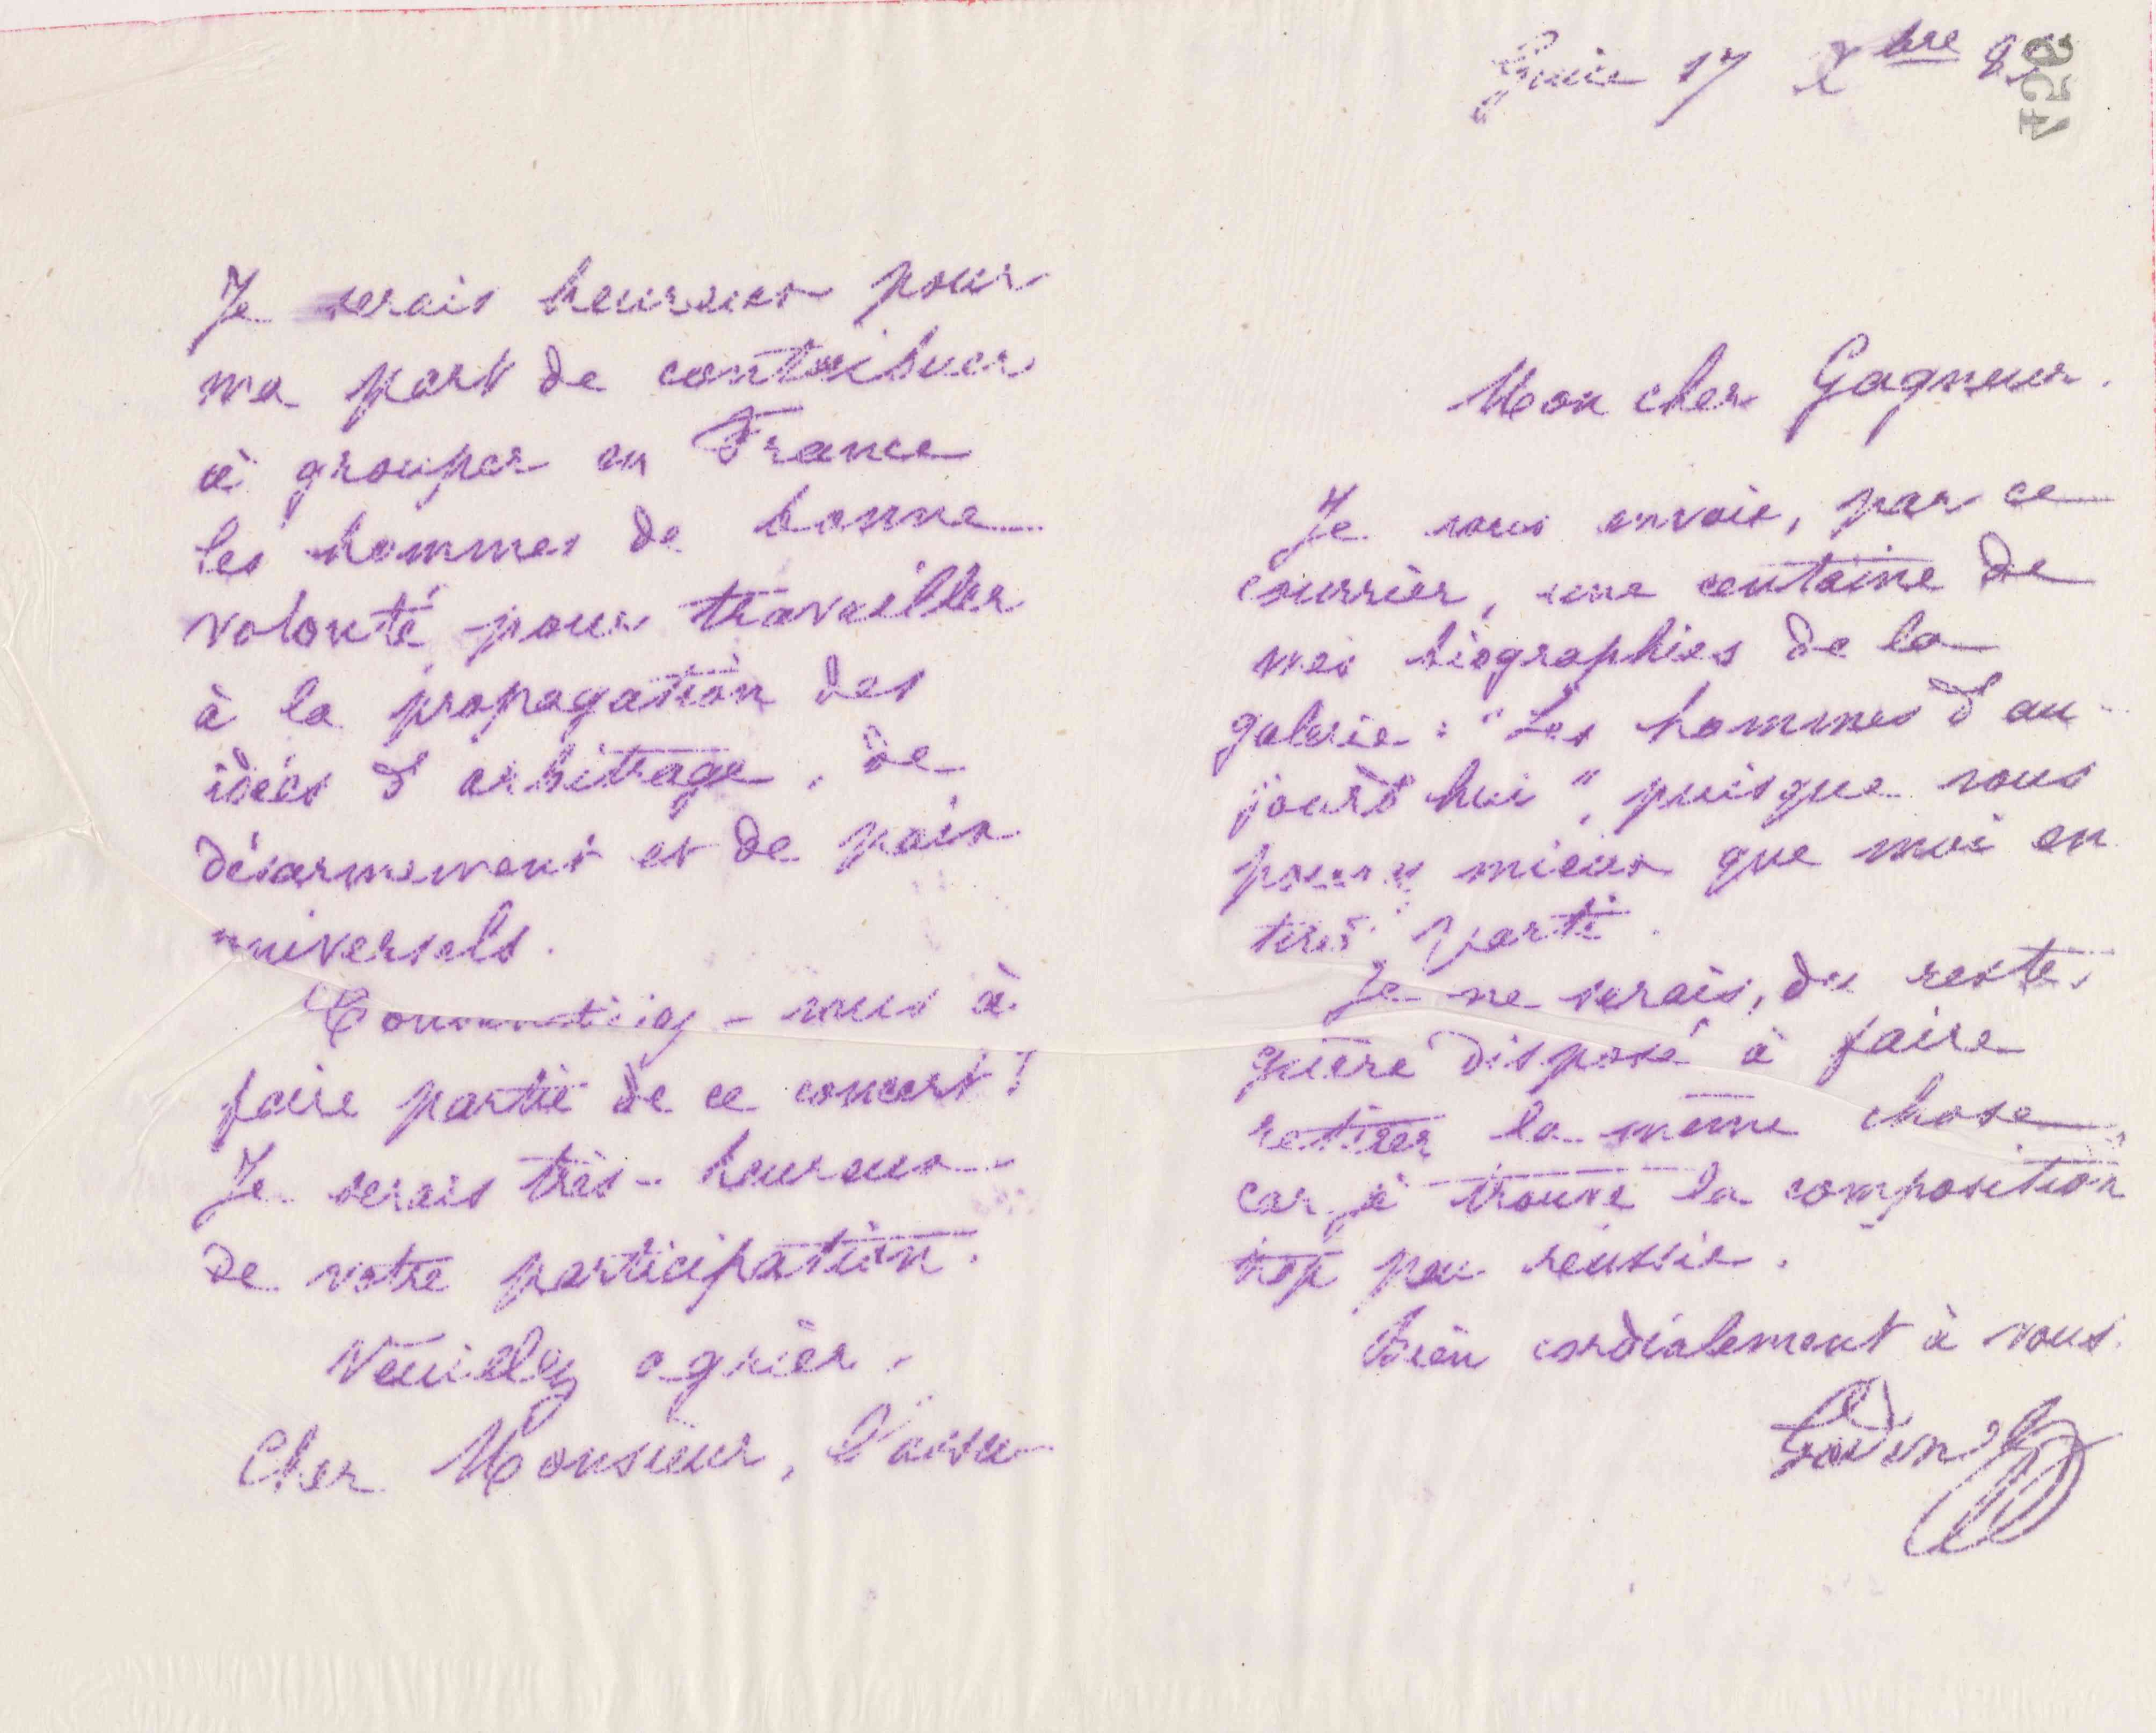 Je serais heureux pour
ma part de contribuer
à grouper en France
les hommes de bonne
volonté pour travailler
à la propagation des
idées d'arbitrage, de
désarmement et de paix
universels.
Consentiriez-vous à
faire partie de ce concert?
Je serais très-heureux
de votre participation.
Veuillez agréer,
Cher Monsieur, l'assu
Guise 17 Xbre
954
Mon cher Gagneur.
Je vous envoie, par ce
courrier, une centaine de
mes biographies de la
galerie: "Les hommes d'au-
jourd'hui", puisque vous
pourrez mieux que moi en
tirer parti.
Je ne serais, du reste,
guère disposé à faire
retirer la même chose,
car je trouve la composition
trop peu réussie.
Bien cordialement à vous.
Godin